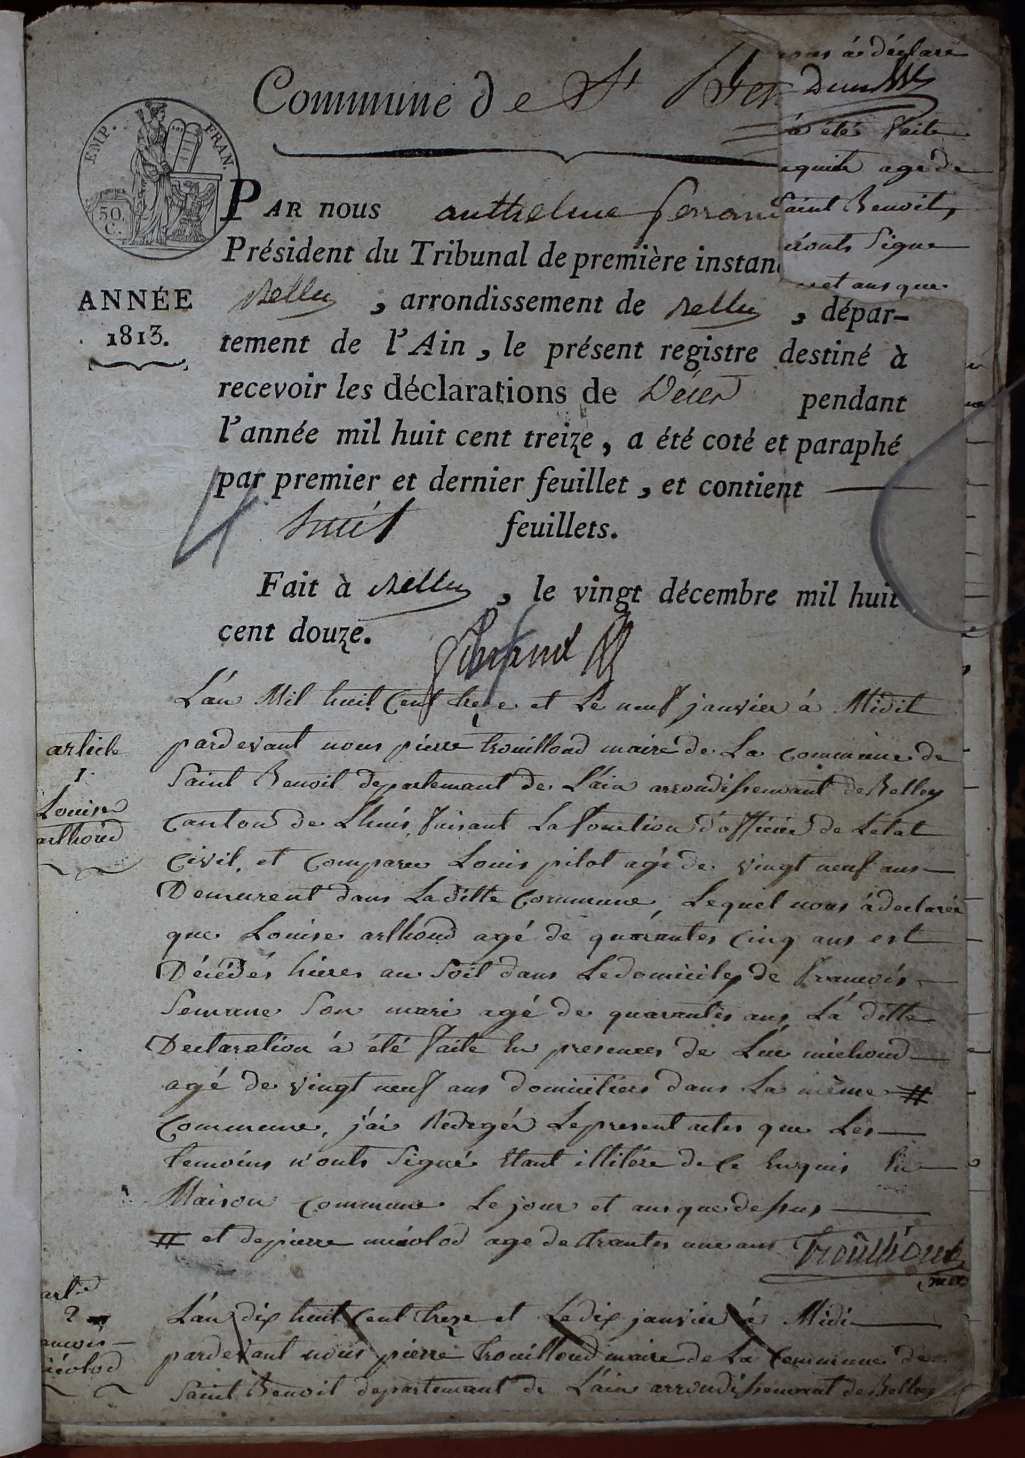 Commune de St
EMP. FRAN.
50. C.
PAR nous anthelme ferrand
Président du Tribunal de première instan
Belley, arrondissement de Belley, dépar-
ANNÉE
1813.
tement de l'Ain, le présent registre destiné à
recevoir les déclarations de Décès pendant
l'année mil huit cent treize, a été coté et paraphé
par premier et dernier feuillet, et contient
huit feuillets.
Fait à Belley, le vingt décembre mil huit
cent douze.
ferrand
nous à déclaré
à étés faite
age de
Saint Benoit
n'onts Signé
et ans que
L'an Mil huit Cent treze et Le neuf janvier à Midit
article
1.
Louise
arlhoud
pardevant nous pierre trouilloud maire de La commune de
Saint Benoit departemant de L'ain arrondissemant de Belley
Canton de Lhuis, faisant La fonction d'officier de L'etat
Civil, et Comparu Louis pilot agé de vingt neuf ans
Demurent dans La ditte Commune, Lequel nous à declarée
que Louise arlhoud agé de quarantes Cinq ans est
Décédés hieres au Soit dans Le domicile de francois
Semene Son mari agé de quarantes ans La ditte
Declaration à été faite En presences de Luc michoud
agé de vingt neuf ans domiciliers dans La même #
Commune, j'ai Redegér Le present actes que Les
temoins n'onts Signé Etant illitére de Ce Enquis En
Maison Commune Le jour et ans que dessus
# et de pierre miolod age de trantes une ans Trouilloud
art
2
miolod
L'an dix huit Cent treze et Le dix janvier à Midi
pardevant nous pierre trouilloud maire de La Commune de
Saint Benoit departemant de L'ain arrondissemant de Belley